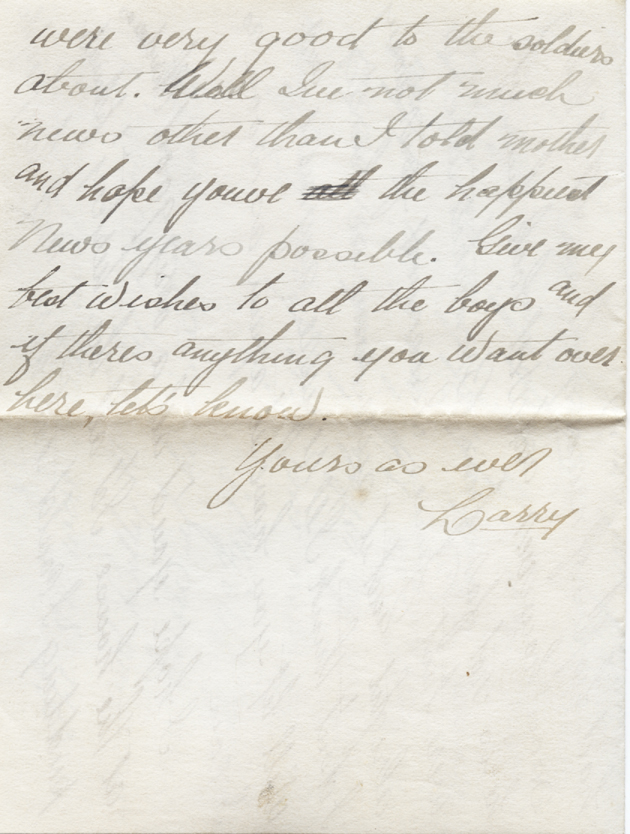 were very good to the soldiers
about. Well Ive not much
news other than I told mother
and hope youve the happiest
News years possible. Give my
best wishes to all the boys and
if theres anything you want over
here, let's know.
Yours as ever
Larry